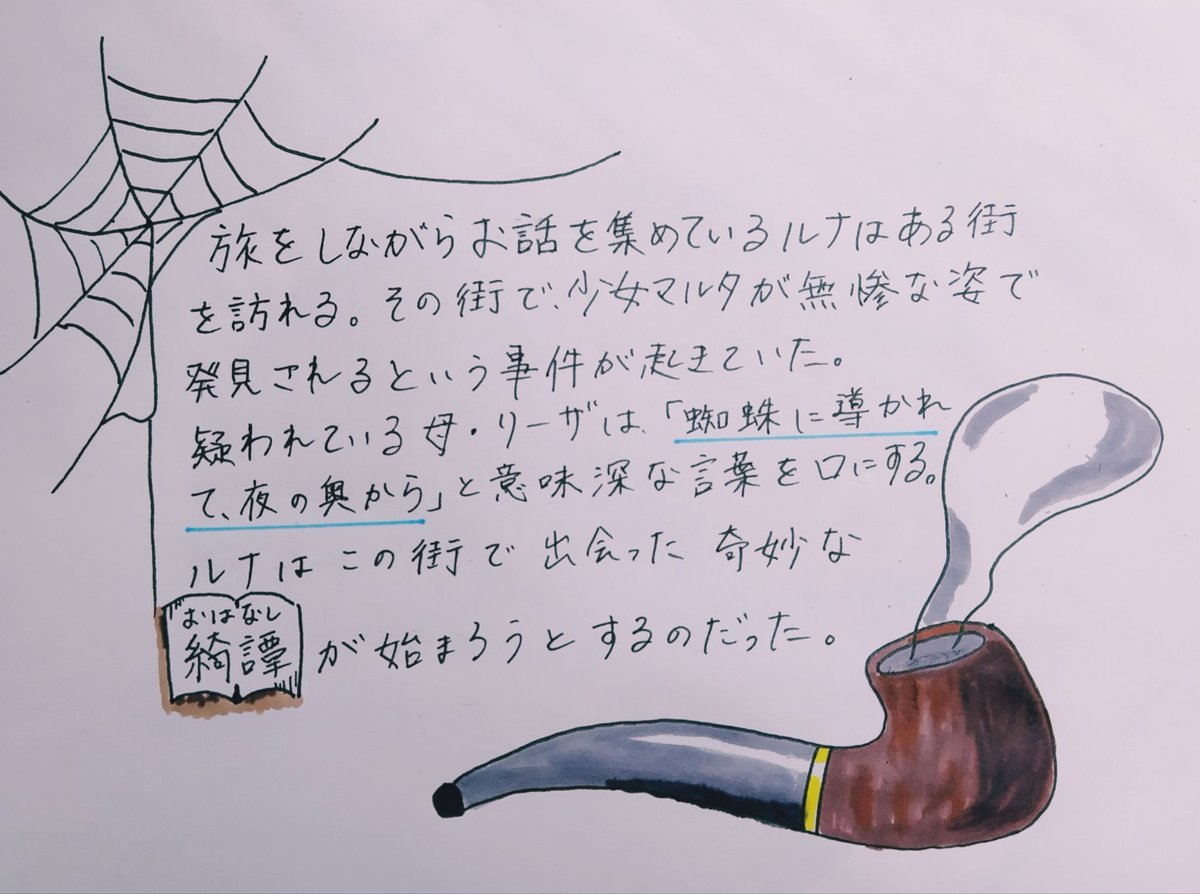 旅をしながらお話を集めているルナはある街
を訪れる。その街で、少女マルタが無惨な姿で
発見されるという事件が起きていた。
疑われている母・リーザは、「蜘蛛に導かれ
て、夜の奥から」と意味深な言葉を口にする。
ルナはこの街で出会った奇妙な
おはなし
綺譚が始まろうとするのだった。